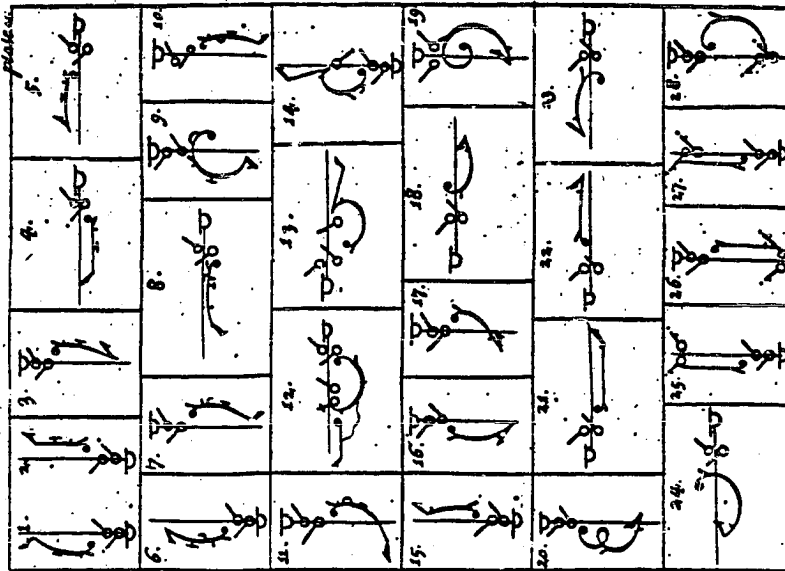 plate
1. 2. 3. 4. 5.
6. 7. 8. 9. 10.
11. 12. 13. 14.
15. 16. 17. 18. 19
20. 21. 22. 23.
24. 25. 26. 27. 28.